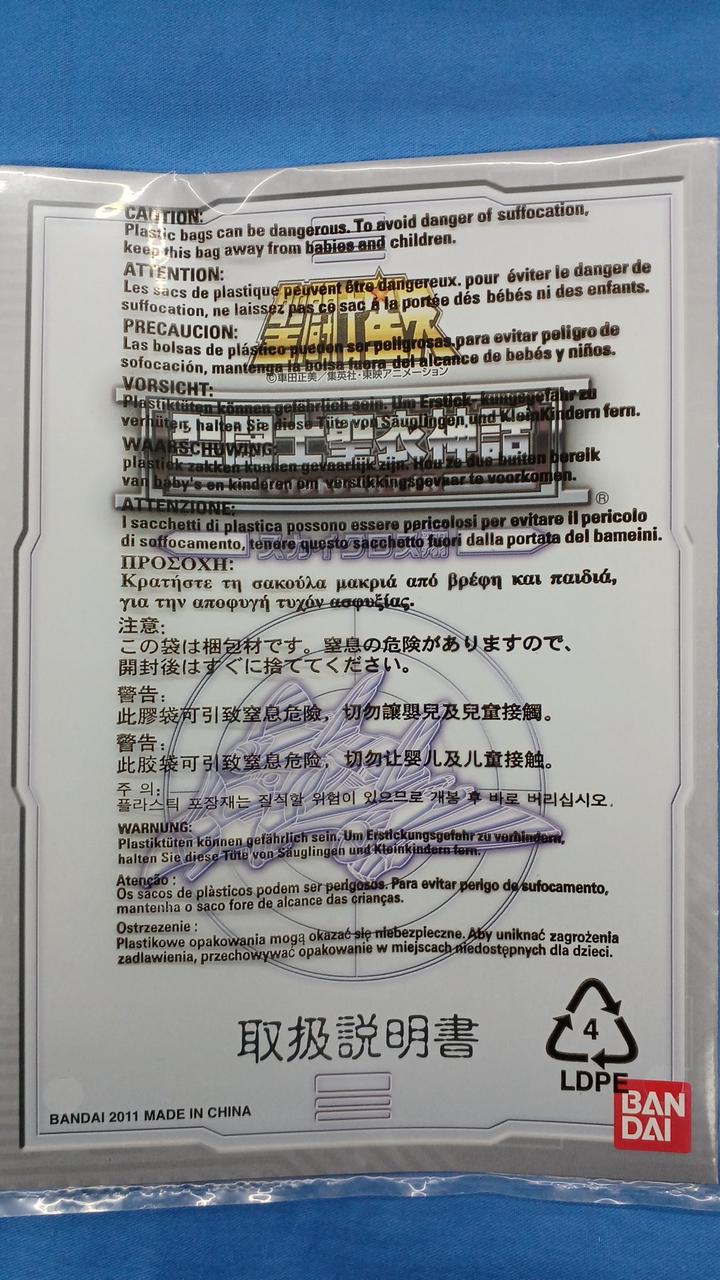 CAUTION:
Plastic bags can be dangerous. To avoid danger of suffocation,
keep this bag away from babies and children.
ATTENTION:
Les sacs de plastique peuvent être dangereux. pour éviter le danger de
suffocation, ne laissez pas ce sac à la portée dés bébés ni des enfants.
PRECAUCION:
Las bolsas de plástico pueden ser peligrosas,para evitar peligro de
sofocación, mantenga la bolsa fuera del alcance de bebés y niños.
©車田正美/集英社・東映アニメーション
VORSICHT:
Plastiktüten können gefährlich sein. Um Erstick-kungsgefahr zu
verhüten, halten Sie diese Tüte von Säuglingen und KleinKindern fern.
聖闘士聖衣神話
WAARSCHUWING:
plastiek zakken kunnen gevaarlijk zijn. Hou ze dus buiten bereik
van baby's en kinderen om verstikkingsgevaar te voorkomen.
®
ATTENZIONE:
I sacchetti di plastica possono essere pericolosi per evitare il pericolo
di soffocamento, tenere questo sacchetto fuori dalla portata dei bameini.
スカイクロス翔
ΠΡΟΣΟΧΗ:
Κρατήστε τη σακούλα μακριά από βρέφη και παιδιά,
για την αποφυγή τυχόν ασφυξίας.
注意:
この袋は梱包材です。窒息の危険がありますので、
開封後はすぐに捨ててください。
警告:
此膠袋可引致窒息危險，切勿讓嬰兒及兒童接觸。
警告:
此胶袋可引致窒息危险，切勿让婴儿及儿童接触。
주 의:
플라스틱 포장재는 질식할 위험이 있으므로 개봉 후 바로 버리십시오.
WARNUNG:
Plastiktüten können gefährlich sein. Um Erstickungsgefahr zu verhindern,
halten Sie diese Tüte von Säuglingen und Kleinkindern fern.
Atenção :
Os sacos de plàsticos podem ser perigosos. Para evitar perigo de sufocamento,
mantenha o saco fore de alcance das crianças.
Ostrzezenie :
Plastikowe opakowania mogą okazać się niebezpieczne. Aby uniknąć zagrożenia
zadławienia, przechowywać opakowanie w miejscach niedostępnych dla dzieci.
取扱説明書
4
LDPE
BANDAI 2011 MADE IN CHINA
BAN
DAI